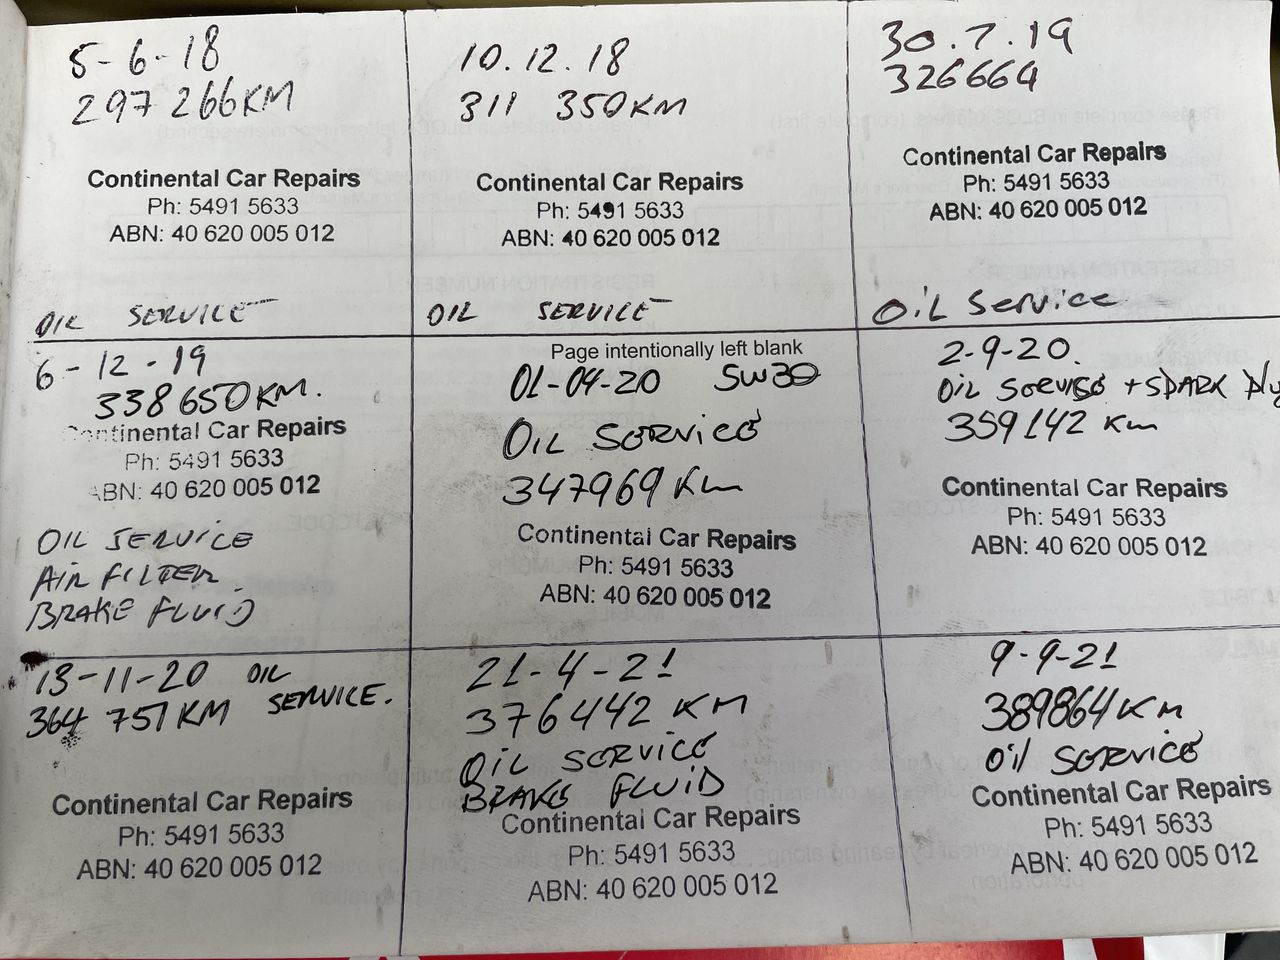 5-6-18
297 266KM
Continental Car Repairs
Ph: 5491 5633
ABN: 40 620 005 012
OIL SERVICE
10.12.18
311 350KM
Continental Car Repairs
Ph: 5491 5633
ABN: 40 620 005 012
OIL SERVICE
30.7.19
326664
Continental Car Repairs
Ph: 5491 5633
ABN: 40 620 005 012
OiL Service
6-12-19
338650KM.
Continental Car Repairs
Ph: 5491 5633
ABN: 40 620 005 012
OIL SERVICE
AIR FILTER
BRAKE FLUID
Page intentionally left blank
01-04-20 5W30
OIL SERVICE
347969 Km
Continental Car Repairs
Ph: 5491 5633
ABN: 40 620 005 012
2-9-20.
OIL SERVICE + SPARK
359142 Km
Continental Car Repairs
Ph: 5491 5633
ABN: 40 620 005 012
13-11-20 OIL
SERVICE.
364 751KM
Continental Car Repairs
Ph: 5491 5633
ABN: 40 620 005 012
21-4-21
376442 KM
OiL SERVICE
BRAKE FLUiD
Continental Car Repairs
Ph: 5491 5633
ABN: 40 620 005 012
9-9-21
389864 KM
Oil SERVICE
Continental Car Repairs
Ph: 5491 5633
ABN: 40 620 005 012